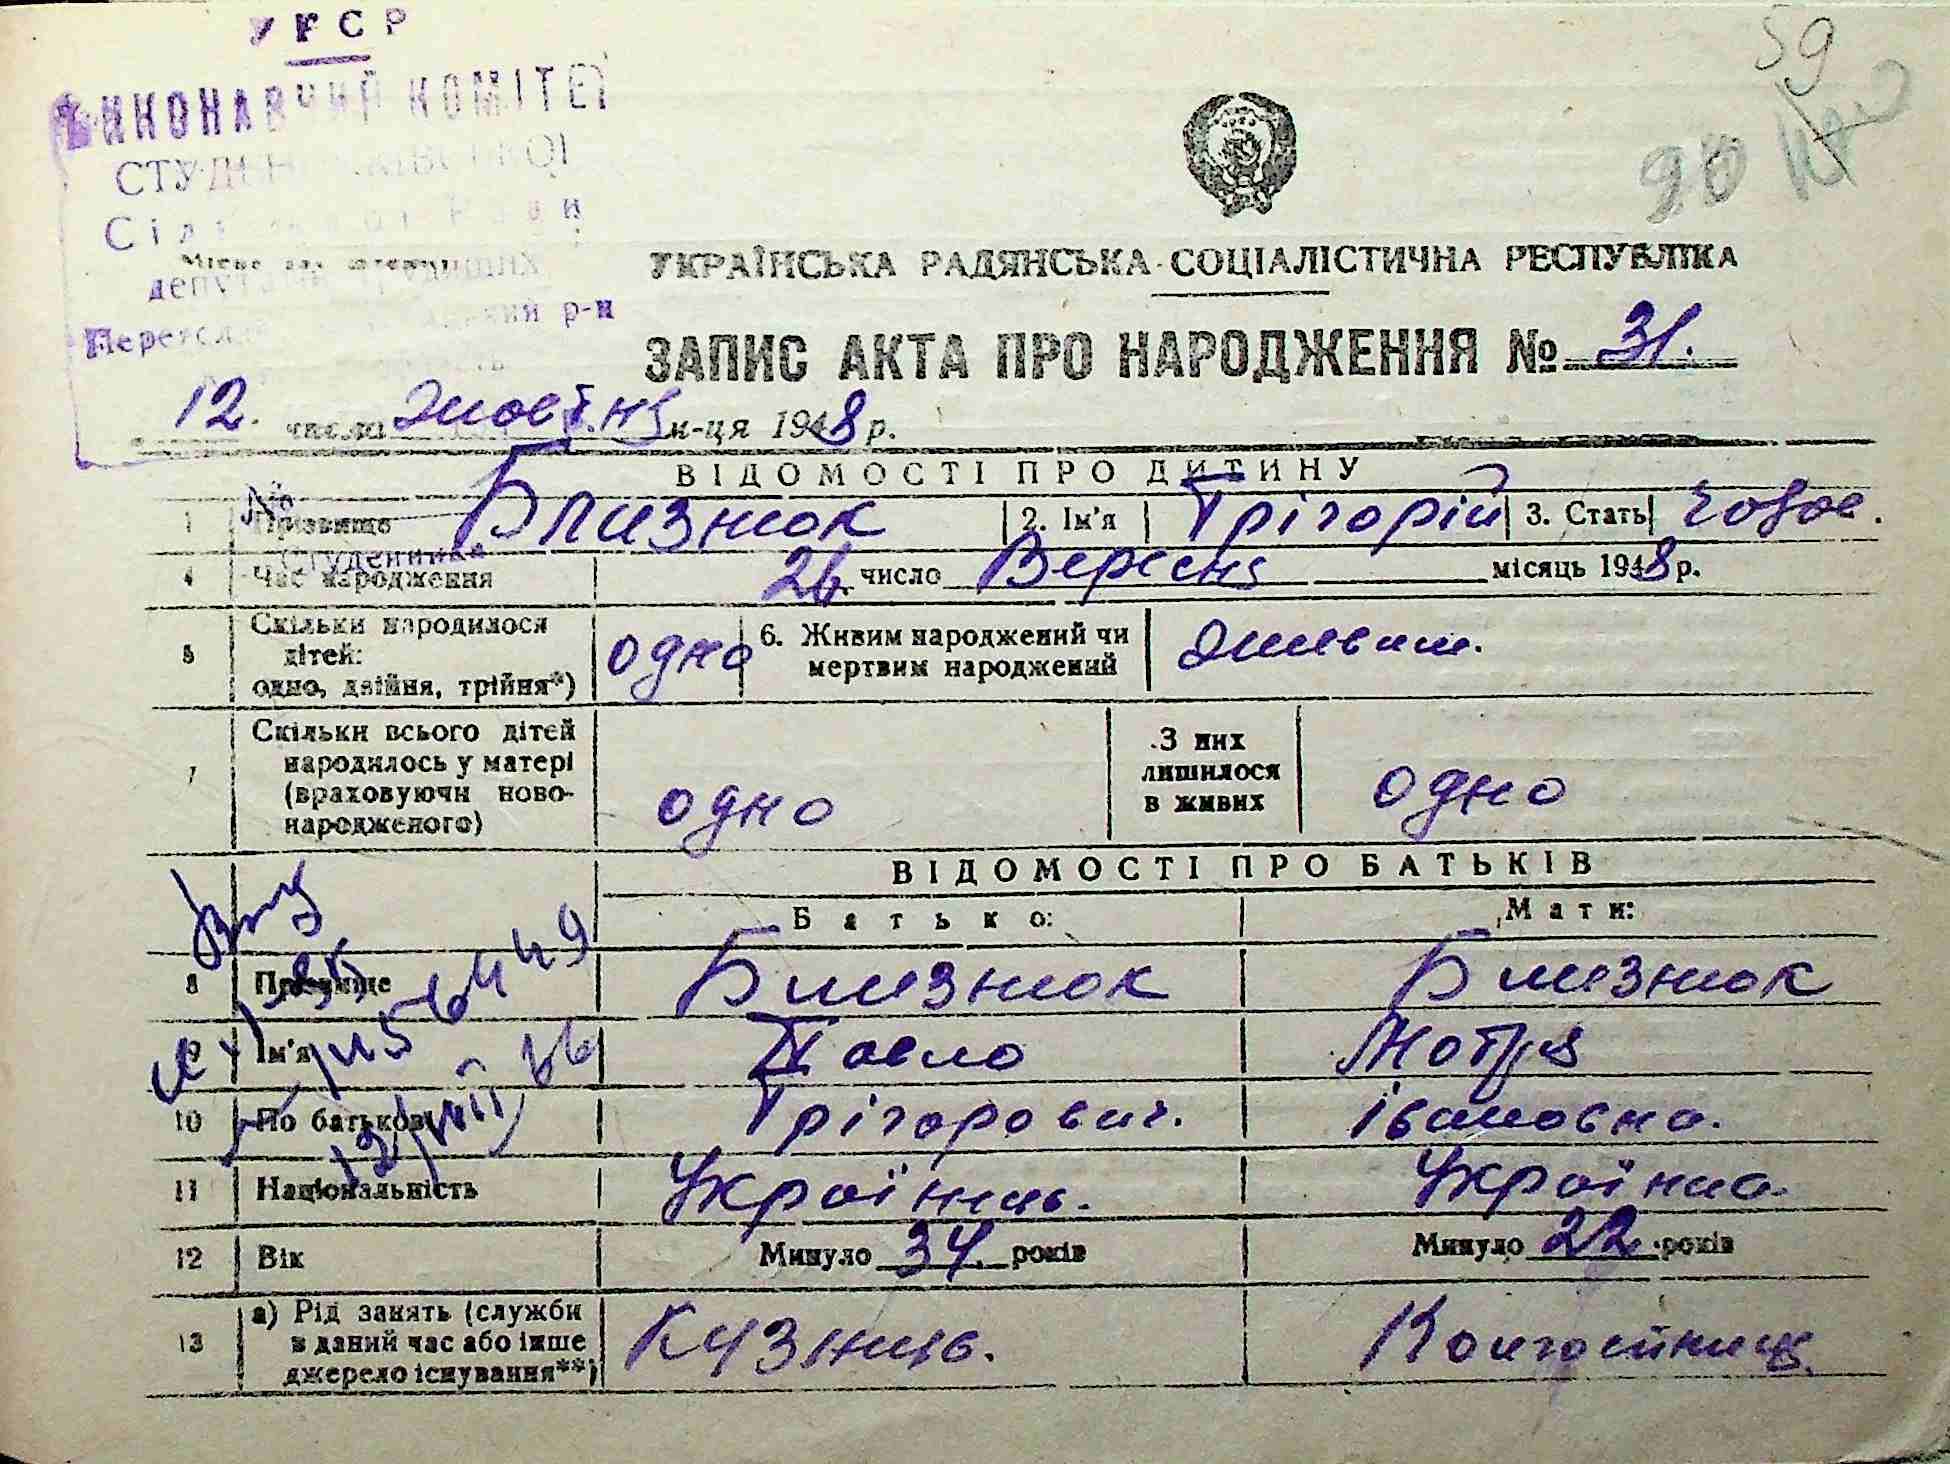 УРСР
ВИКОНАВЧИЙ КОМІТЕТ
депутатів трудящих
р-н
59
90
УКРАЇНСЬКА РАДЯНСЬКА СОЦІАЛІСТИЧНА РЕСПУБЛІКА
ЗАПИС АКТА ПРО НАРОДЖЕННЯ № 31.
12. число жовтня м-ця 1948 р.
ВІДОМОСТІ ПРО ДИТИНУ
№
1 Прізвище Близнюк 2. Ім'я Грігорій 3. Стать чолов.
Студеники
4 Час народження 26. число Вересня місяць 1948 р.
5 Скільки народилося дітей: одно, двійня, трійня*) одно 6. Живим народжений чи мертвим народжений живим.
7 Скільки всього дітей народилось у матері (враховуючи новонародженого) одно З них лишилося в живих одно
ВІДОМОСТІ ПРО БАТЬКІВ
Батько: Мати:
8 Прізвище Близнюк Близнюк
9 Ім'я Павло Мотря
10 По батькові Грігорович. Івановна.
11 Національність Українць. Українка.
12 Вік Минуло 34 років Минуло 22 років
13 а) Рід занять (служби в даний час або інше джерело існування**) Кузнець. Колгоспниця